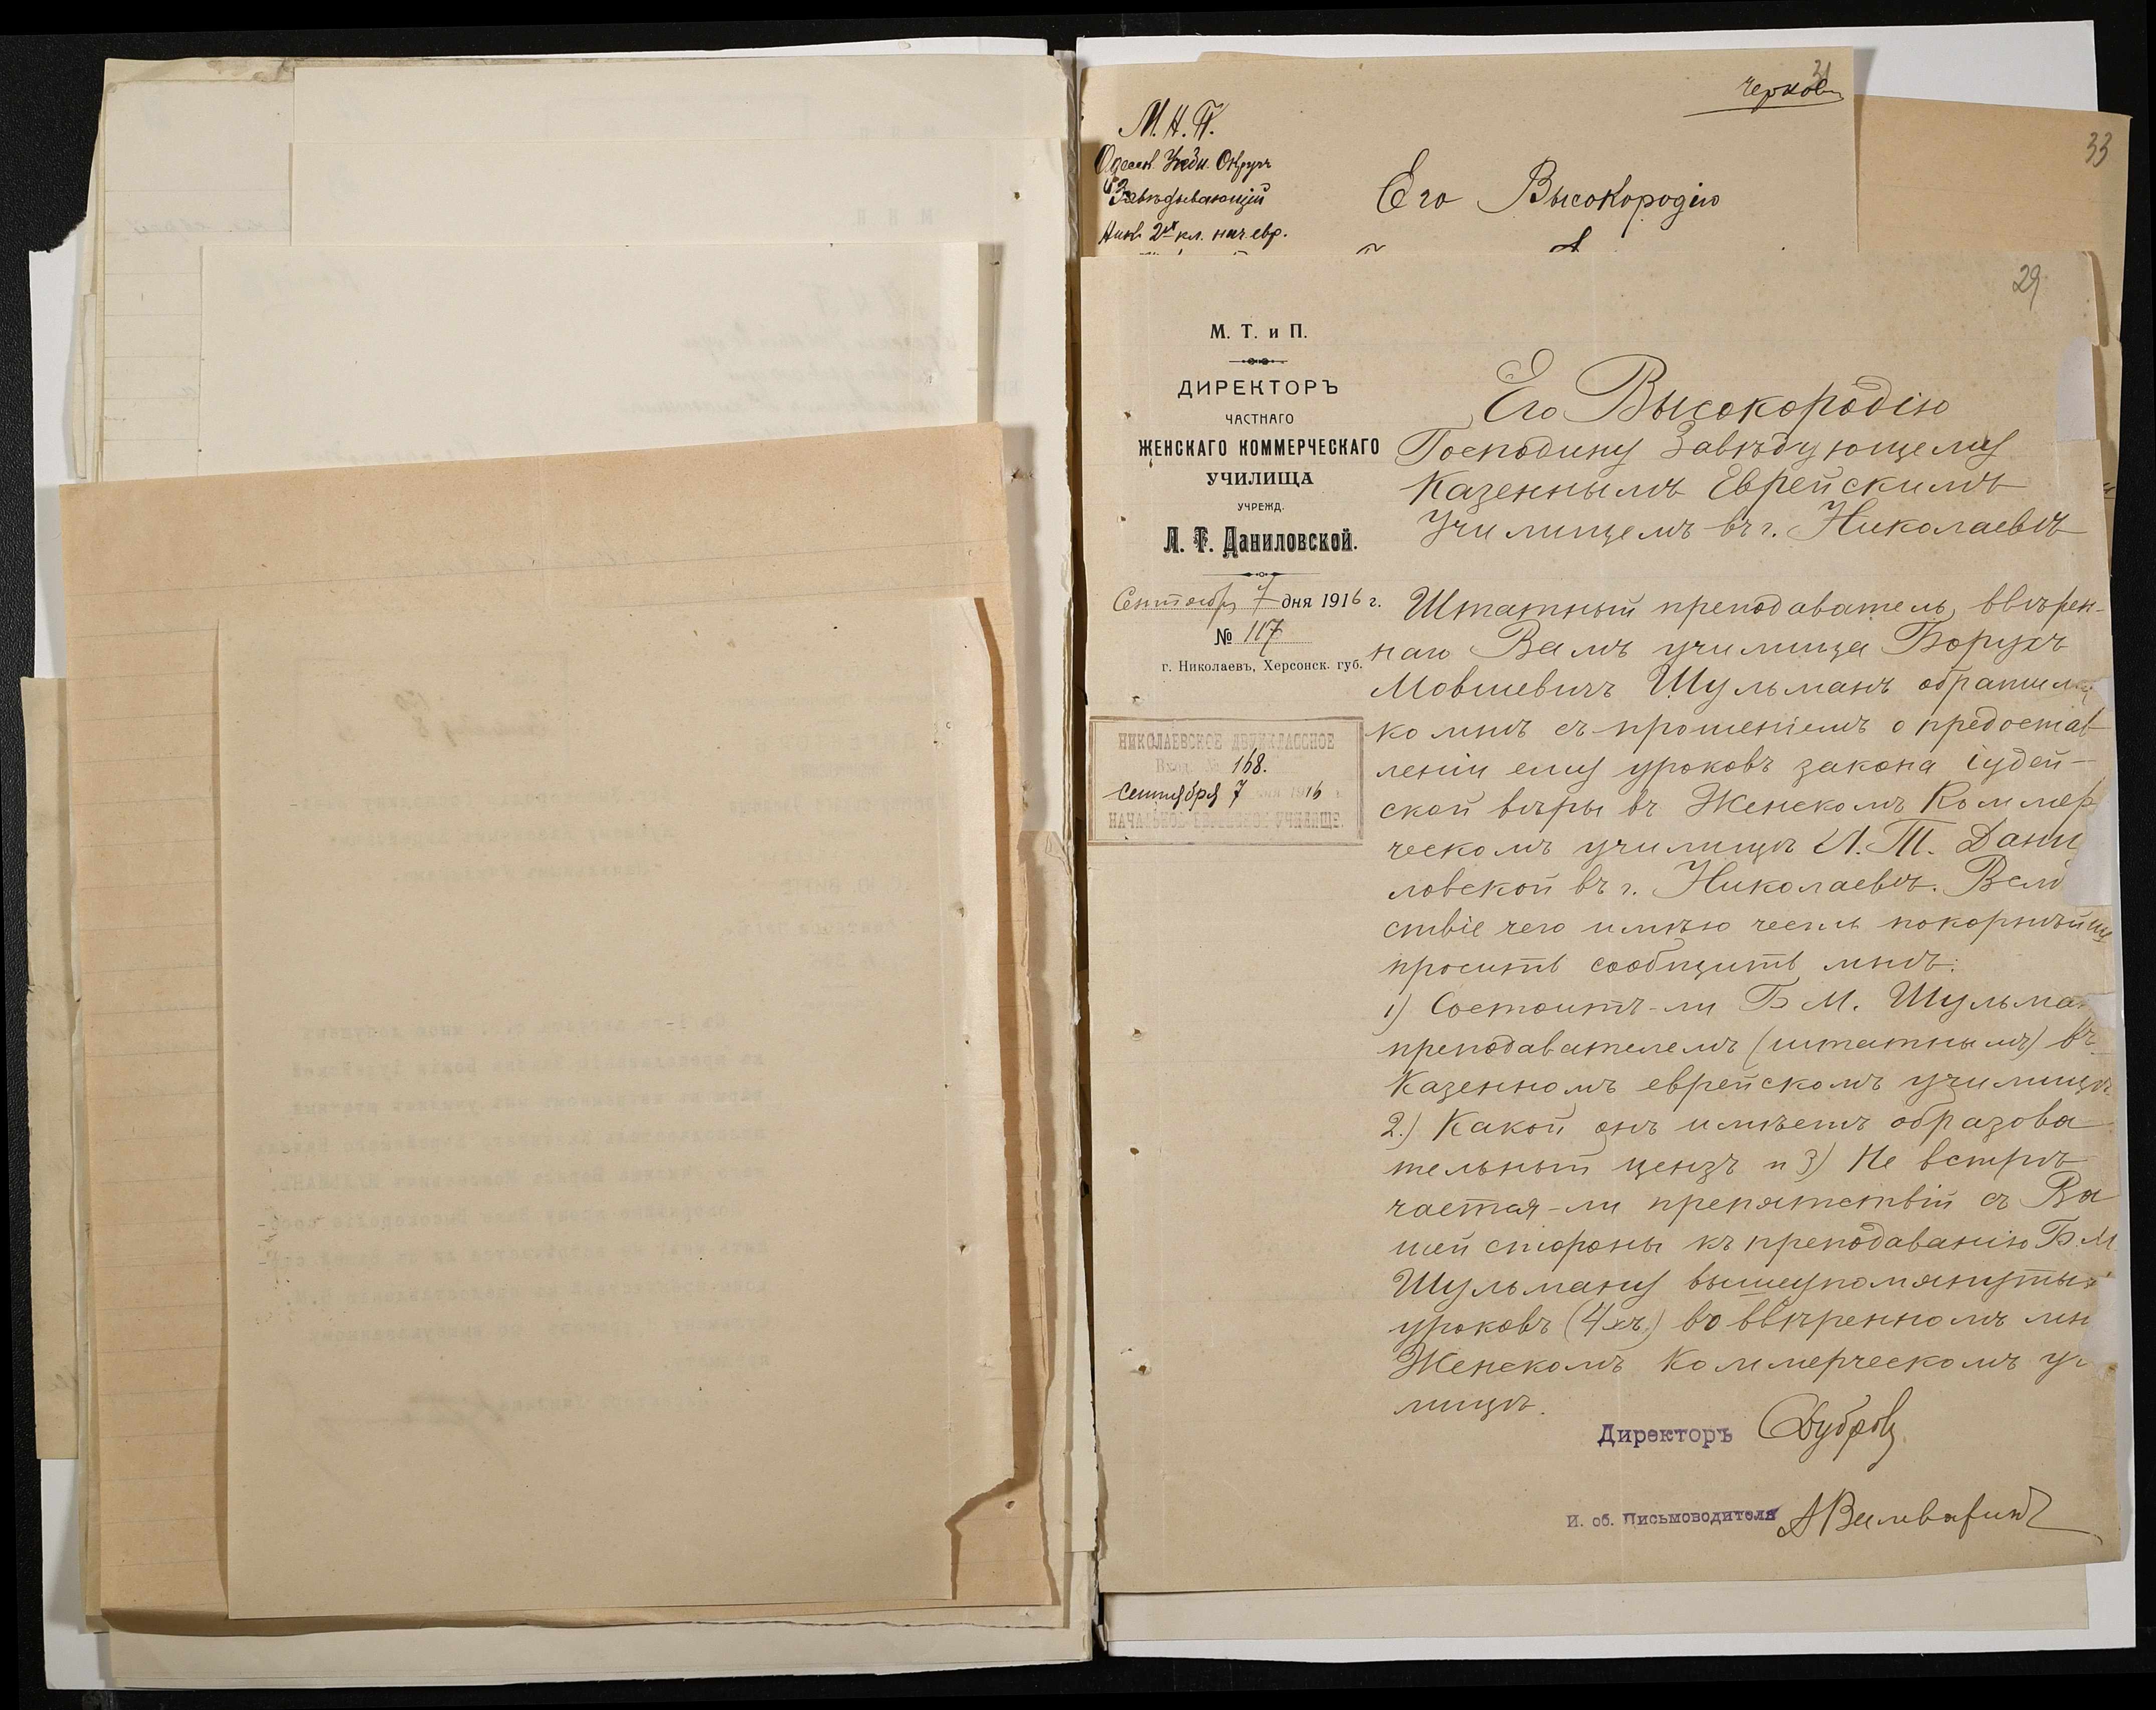 31
черков
33
М. Н. П.
Одесск. Учебн. Округъ
Завѣдывающій
Ник. 2х кл. нач. евр.
Его Высокородію
29
М. Т. и П.
ДИРЕКТОРЪ
ЧАСТНАГО
ЖЕНСКАГО КОММЕРЧЕСКАГО
УЧИЛИЩА
УЧРЕЖД.
Л. Т. Даниловской.
Сентября 7 дня 1916 г.
№ 117
г. Николаевъ, Херсонск. губ.
НИКОЛАЕВСКОЕ ДВУХКЛАССНОЕ
Вход. № 168.
Сентября 7 дня 1916 г.
НАЧАЛЬНОЕ ЕВРЕЙСКОЕ УЧИЛИЩЕ.
Его Высокородію
Господину Завѣдующему
Казеннымъ Еврейскимъ
Училищемъ въ г. Николаевѣ
Штатный преподаватель, ввѣрен-
наго Вамъ училища Борухъ
Мовшевичъ Шульманъ обратился
ко мнѣ съ прошеніемъ о предостав-
леніи ему уроковъ закона іудей-
ской вѣры въ Женскомъ Коммер
ческомъ училищѣ Л. Т. Дани
ловской въ г. Николаевѣ. Вслѣд
ствіе чего имѣю честь покорнѣйше
просить сообщить мнѣ:
1) Состоитъ-ли Б М. Шульман
преподавателемъ (штатнымъ) въ
Казенномъ еврейскомъ училищѣ
2.) Какой онъ имѣетъ образова
тельный цензъ и 3) Не встрѣ
чается-ли препятствій съ Ва
шей стороны къ преподаванію Б. М.
Шульману вышеупомянутых
уроковъ (4хъ) во ввѣренномъ мн
Женскомъ Коммерческомъ учи
лищѣ.
Директоръ
И. об. Письмоводителя